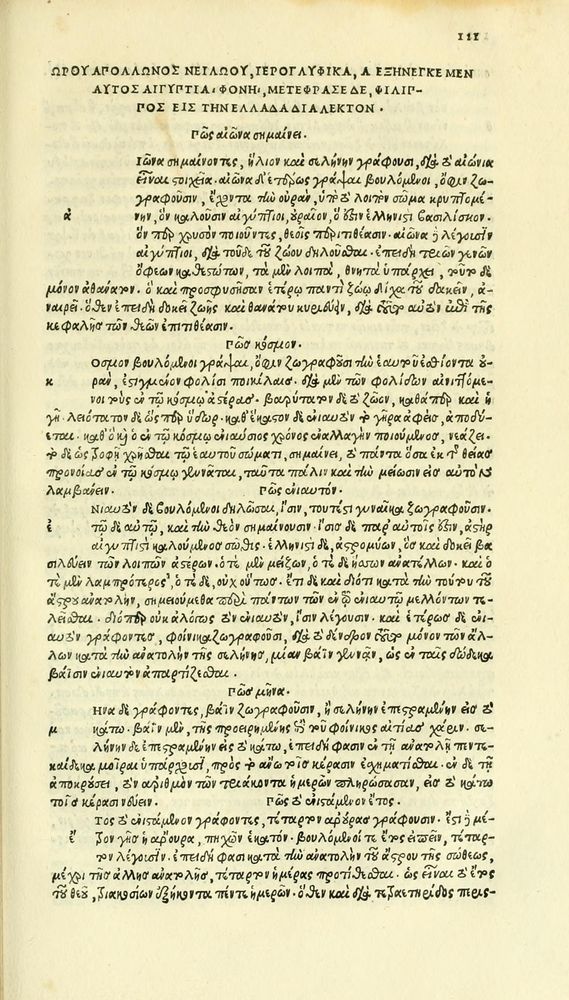 111
ΩΡΟΥ ΑΠΟΛΛΩΝΟΣ ΝΕΙΛΩΟΥ, ΙΕΡΟΓΛΥΦΙΚΑ, Α ΕΞΗΝΕΓΚΕ ΜΕΝ
ΑΥΤΟΣ ΑΙΓΥΠΤΙΑ ΦΟΝΗ, ΜΕΤΕΦΡΑΣΕ ΔΕ, ΦΙΛΙΠ-
ΠΟΣ ΕΙΣ ΤΗΝ ΕΛΛΑΔΑ ΔΙΑΛΕΚΤΟΝ.
Πῶς αἰῶνα σημαίνει.
Ιῶνα σημαίνοντες, ἥλιον καὶ σελήνην γράφουσι, διὰ τὸ αἰώνια
εἶναι στοιχεῖα. αἰῶνα δ' ἑτέρως γράψαι βουλόμενοι, ὄφιν ζω-
γραφοῦσιν, ἔχοντα τὴν οὐρὰν, ὑπὸ τὸ λοιπὸν σῶμα κρυπτομέ-
α νην, ὃν καλοῦσιν αἰγύπτιοι, οὐραῖον, ὅ ἐστιν ἑλληνιστὶ βασιλίσκον.
ὅν περ χρυσοῦν ποιοῦντες, θεοῖς περιτιθέασιν. αἰῶνα ἢ λέγουσιν
αἰγύπτιοι, διὰ τοῦδε τοῦ ζώου δηλοῦσθαι. ἐπειδὴ τριῶν γενῶν
ὄφεων καθεστώτων, τὰ μὲν λοιπὰ, θνητὰ ὑπάρχει, τοῦτο δὲ
μόνον ἀθάνατον. ὃ καὶ προσφυσῆσαν ἑτέρῳ παντὶ ζώῳ δίχα τοῦ δακεῖν, ἀ-
ναιρεῖ. ὅθεν ἐπειδὴ δοκεῖ ζωῆς καὶ θανάτου κυριεύειν, διὰ τοῦτο αὐτὸν ἐπὶ τῆς
κεφαλῆς τῶν θεῶν ἐπιτιθέασιν.
Πῶς κόσμον.
Οσμον βουλόμενοι γράψαι, ὄφιν ζωγραφοῦσι τὴν ἑαυτοῦ ἐσθίοντα οὐ-
κ ρὰν, ἐστιγμένον φολίσι ποικίλαις. διὰ μὲν τῶν φολίδων αἰνιττόμε-
νοι τοὺς ἐν τῷ κόσμῳ ἀστέρας. βαρύτατον δὲ τὸ ζῶον, καθάπερ καὶ ἡ
γῆ. λειότατον δὲ ὥσπερ ὕδωρ. καθ' ἕκαστον δὲ ἐνιαυτὸν τὸ γῆρας ἀφεὶς, ἀποδύ-
εται. καθ' ὃ καὶ ὁ ἐν τῷ κόσμῳ ἐνιαύσιος χρόνος ἐναλλαγὴν ποιούμενος, νεάζει.
τὸ δὲ ὡς τροφῇ χρῆσθαι τῷ ἑαυτοῦ σώματι, σημαίνει, τὸ πάντα ὅσα ἐκ τῆς θείας
προνοίας ἐν τῷ κόσμῳ γεννᾶται, ταῦτα πάλιν καὶ τὴν μείωσιν εἰς αὐτὸν
λαμβάνειν. Πῶς ἐνιαυτόν.
Νιαυτὸν δὲ βουλόμενοι δηλῶσαι, ἶσιν, τουτέστι γυναῖκα ζωγραφοῦσιν.
ε τῷ δὲ αὐτῷ, καὶ τὴν θεὸν σημαίνουσιν. ἶσις δὲ παρ' αὐτοῖς ἐστὶν, ἀστὴρ
αἰγυπτιστὶ καλούμενος σῶθις. ἑλληνιστὶ δὲ, ἀστροκύων, ὃς καὶ δοκεῖ βα
σιλεύειν τῶν λοιπῶν ἀστέρων. ὁτὲ μὲν μείζων, ὁτὲ δὲ ἥσσων ἀνατέλλων. καὶ ὁ
τὲ μὲν λαμπρότερος, ὁτὲ δὲ, οὐχ οὕτως. ἔτι δὲ καὶ διότι κατὰ τὴν τούτου τοῦ
ἄστρου ἀνατολὴν, σημειούμεθα περὶ πάντων τῶν ἐν τῷ ἐνιαυτῷ μελλόντων τε-
λεῖσθαι. διόπερ οὐκ ἀλόγως τὸν ἐνιαυτὸν, ἶσιν λέγουσιν. καὶ ἑτέρως δὲ ἐνι-
αυτὸν γράφοντες, φοίνικα ζωγραφοῦσι, διὰ τὸ δένδρον τοῦτο μόνον τῶν ἄλ-
λων κατὰ τὴν ἀνατολὴν τῆς σελήνης, μίαν βάϊν γεννᾶν, ὡς ἐν ταῖς δώδεκα
βάϊσιν ἐνιαυτὸν ἀπαρτίζεσθαι.
Πῶς μῆνα.
Ηνα δὲ γράφοντες, βάϊν ζωγραφοῦσιν, ἢ σελήνην ἐπεστραμμένην εἰς τὸ
μ κάτω. βάϊν μὲν, τῆς προειρημένης περὶ τοῦ φοίνικος αἰτίας χάριν. σε-
λήνην δὲ ἐπεστραμμένην εἰς τὸ κάτω, ἐπειδὴ φασὶν ἐν τῇ ἀνατολῇ πεντε-
καίδεκα μοιρῶν ὑπάρχουσαν, πρὸς τὸ ἄνω τοῖς κέρασιν ἐσχηματίσθαι. ἐν δὲ τῇ
ἀποκρούσει, τὸν ἀριθμὸν τῶν τριάκοντα ἡμερῶν πληρώσασαν, εἰς τὸ κάτω
τοῖς κέρασι νεύειν. Πῶς τὸ ἐνιστάμενον ἔτος.
Τος τὸ ἐνιστάμενον γράφοντες, τέταρτον ἀρούρας γράφουσιν. ἔστι δὲ μέ-
ε τρον γῆς ἡ ἄρουρα, πηχῶν ἑκατόν. βουλόμενοί τε ἔτος εἰπεῖν, τέταρ-
τον λέγουσιν. ἐπειδὴ φασὶ κατὰ τὴν ἀνατολὴν τοῦ ἄστρου τῆς σώθεως,
μέχρι τῆς ἄλλης ἀνατολῆς, τέταρτον ἡμέρας προστίθεσθαι. ὡς εἶναι τὸ ἔτος
τοῦ θεοῦ, τριακοσίων ἑξήκοντα πέντε ἡμερῶν. ὅθεν καὶ διὰ τετραετηρίδος περισ-